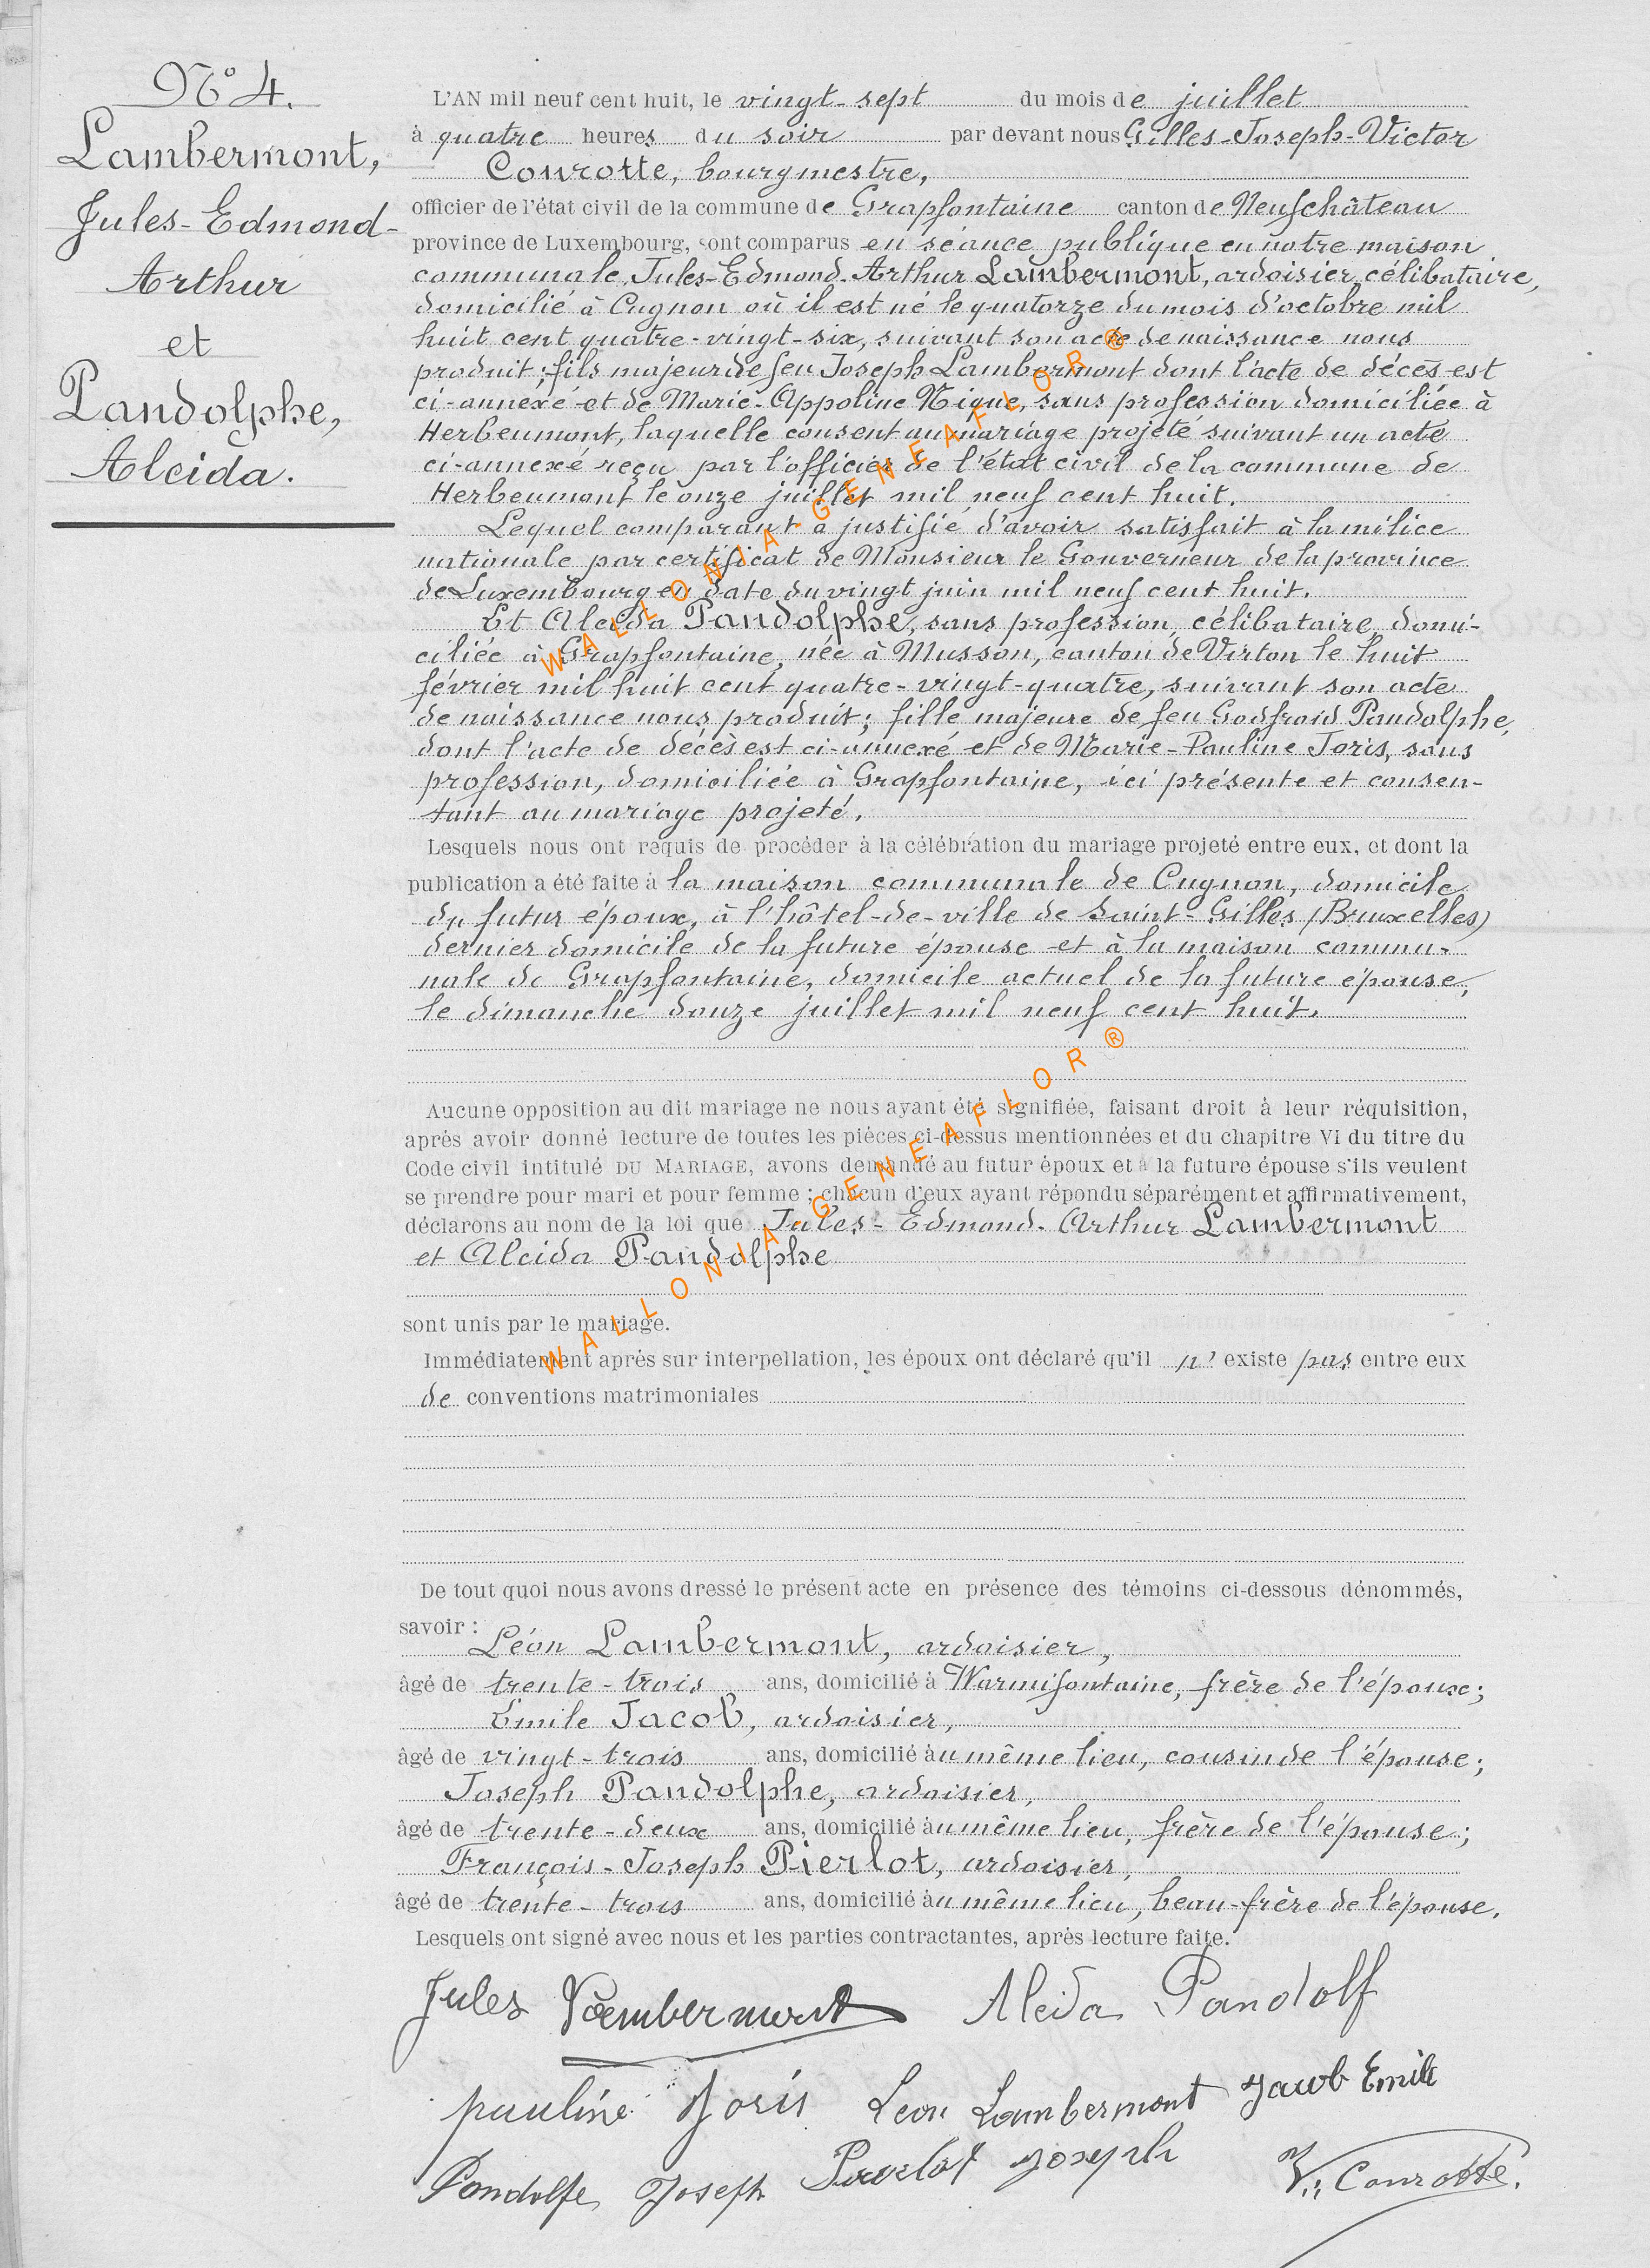 N° 4.
Lambermont,
Jules-Edmond-
Arthur
et
Pandolphe,
Alcida.
L'AN mil neuf cent huit, le vingt-sept du mois de juillet
à quatre heures du soir par devant nous Gilles-Joseph-Victor
Conrotte, bourgmestre,
officier de l'état civil de la commune de Grapfontaine canton de Neufchâteau
province de Luxembourg, sont comparus en séance publique en notre maison
communale, Jules-Edmond-Arthur Lambermont, ardoisier, célibataire,
domicilié à Cugnon où il est né le quatorze du mois d'octobre mil
huit cent quatre-vingt-six, suivant son acte de naissance nous
produit; fils majeur de feu Joseph Lambermont dont l'acte de décès est
ci-annexé et de Marie-Appoline Nique, sans profession domiciliée à
Herbeumont, laquelle consent au mariage projeté suivant un acte
ci-annexé reçu par l'officier de l'état civil de la commune de
Herbeumont le onze juillet mil neuf cent huit.
Lequel comparant a justifié d'avoir satisfait à la milice
nationale par certificat de Monsieur le Gouverneur de la province
de Luxembourg en date du vingt juin mil neuf cent huit.
Et Alcida Pandolphe, sans profession, célibataire, domi-
ciliée à Grapfontaine, née à Musson, canton de Virton le huit
février mil huit cent quatre-vingt-quatre, suivant son acte
de naissance nous produit; fille majeure de feu Godfroid Pandolphe,
dont l'acte de décès est ci-annexé et de Marie-Pauline Joris, sans
profession, domiciliée à Grapfontaine, ici présente et consen-
tant au mariage projeté.
Lesquels nous ont requis de procéder à la célébration du mariage projeté entre eux, et dont la
publication a été faite à la maison communale de Cugnon, domicile
du futur époux, à l'hôtel-de-ville de Saint-Gilles (Bruxelles)
dernier domicile de la future épouse et à la maison commu-
nale de Grapfontaine, domicile actuel de la future épouse,
le dimanche douze juillet mil neuf cent huit.
Aucune opposition au dit mariage ne nous ayant été signifiée, faisant droit à leur réquisition,
après avoir donné lecture de toutes les pièces ci-dessus mentionnées et du chapitre VI du titre du
Code civil intitulé DU MARIAGE, avons demandé au futur époux et à la future épouse s'ils veulent
se prendre pour mari et pour femme ; chacun d'eux ayant répondu séparément et affirmativement,
déclarons au nom de la loi que Jules-Edmond-Arthur Lambermont
et Alcida Pandolphe
sont unis par le mariage.
Immédiatement après sur interpellation, les époux ont déclaré qu'il n' existe pas entre eux
de conventions matrimoniales
De tout quoi nous avons dressé le présent acte en présence des témoins ci-dessous dénommés,
savoir :
Léon Lambermont, ardoisier,
âgé de trente-trois ans, domicilié à Warmifontaine, frère de l'époux;
Emile Jacob, ardoisier,
âgé de vingt-trois ans, domicilié au même lieu, cousin de l'épouse;
Joseph Pandolphe, ardoisier,
âgé de trente-deux ans, domicilié au même lieu, frère de l'épouse;
François-Joseph Pierlot, ardoisier,
âgé de trente-trois ans, domicilié au même lieu, beau-frère de l'épouse.
Lesquels ont signé avec nous et les parties contractantes, après lecture faite.
Jules Lambermont Alcida Pandolf
pauline Joris Leon Lambermont Jacob Emile
Pandolfe Joseph Pierlot Joseph V. Conrotte.
WALLONIA-GENEAFLOR®
WALLONIA-GENEAFLOR®